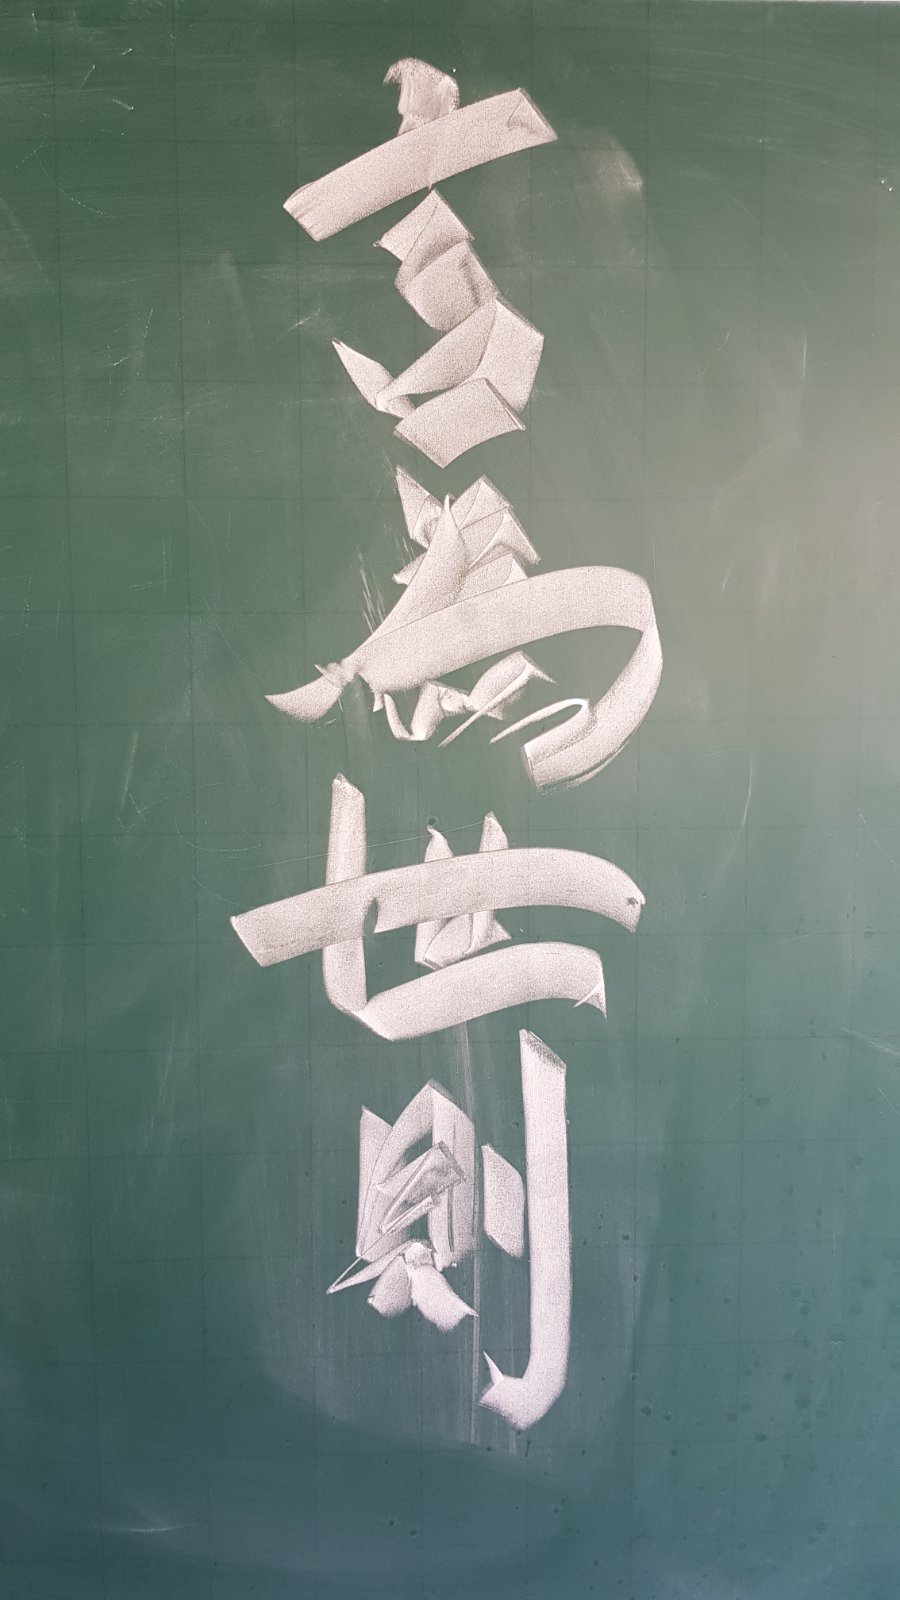 言為世則